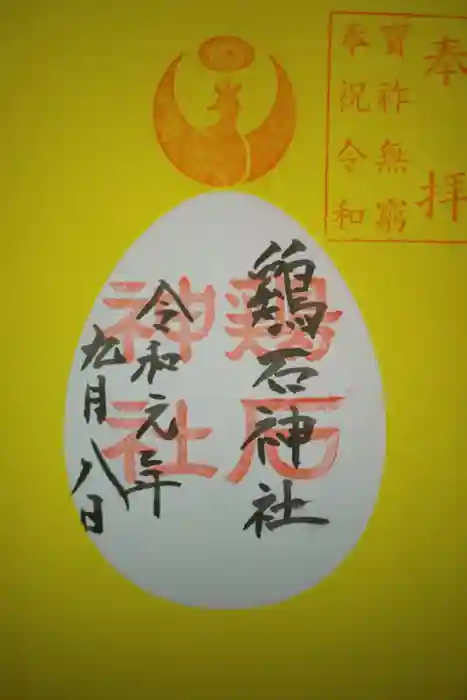 奉拝
寳祚無窮
奉祝令和
鶏石神社
鶏石
神社
令和元年
九月八日